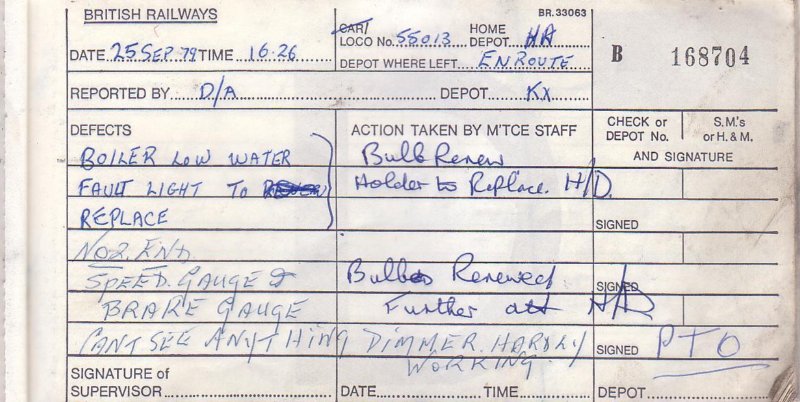 BRITISH RAILWAYS
BR.33063
DATE 25 SEP 79 TIME 16.26
CAR/
LOCO No. 55013 HOME DEPOT HA
DEPOT WHERE LEFT EN ROUTE
B 168704
REPORTED BY D/A DEPOT KX
DEFECTS
ACTION TAKEN BY M'TCE STAFF
CHECK or DEPOT No.
S.M.'s or H. & M.
AND SIGNATURE
BOILER LOW WATER
Bulb Renew
FAULT LIGHT TO
Holder to Replace. H/D.
REPLACE
SIGNED
NO2. END
SPEED. GAUGE &
Bulbs Renewed
SIGNED
BRAKE GAUGE
Further att H/D
CANT SEE ANYTHING DIMMER. HARDLY WORKING.
SIGNED PTO
SIGNATURE of SUPERVISOR
DATE TIME
DEPOT